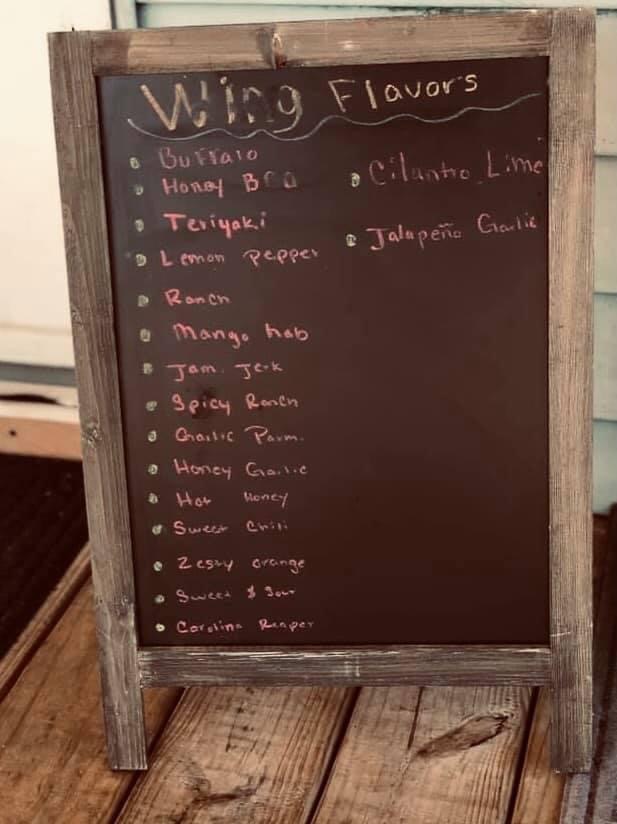 Wing Flavors
Buffalo
Honey BBQ
Teriyaki
Lemon Pepper
Ranch
Mango hab
Jam. Jerk
Spicy Ranch
Garlic Parm.
Honey Garlic
Hot Honey
Sweet Chili
Zesty orange
Sweet & Sour
Carolina Reaper
Cilantro Lime
Jalapeño Garlic